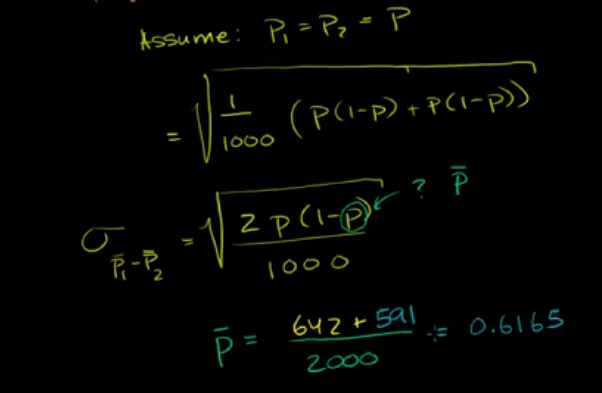 Assume: P₁ = P₂ = P
= √(1/1000 (P(1-P) + P(1-P)))
σ_(P̄₁-P̄₂) = √(2P(1-P)/1000) ← ? P̄
P̄ = (642 + 591)/2000 = 0.6165